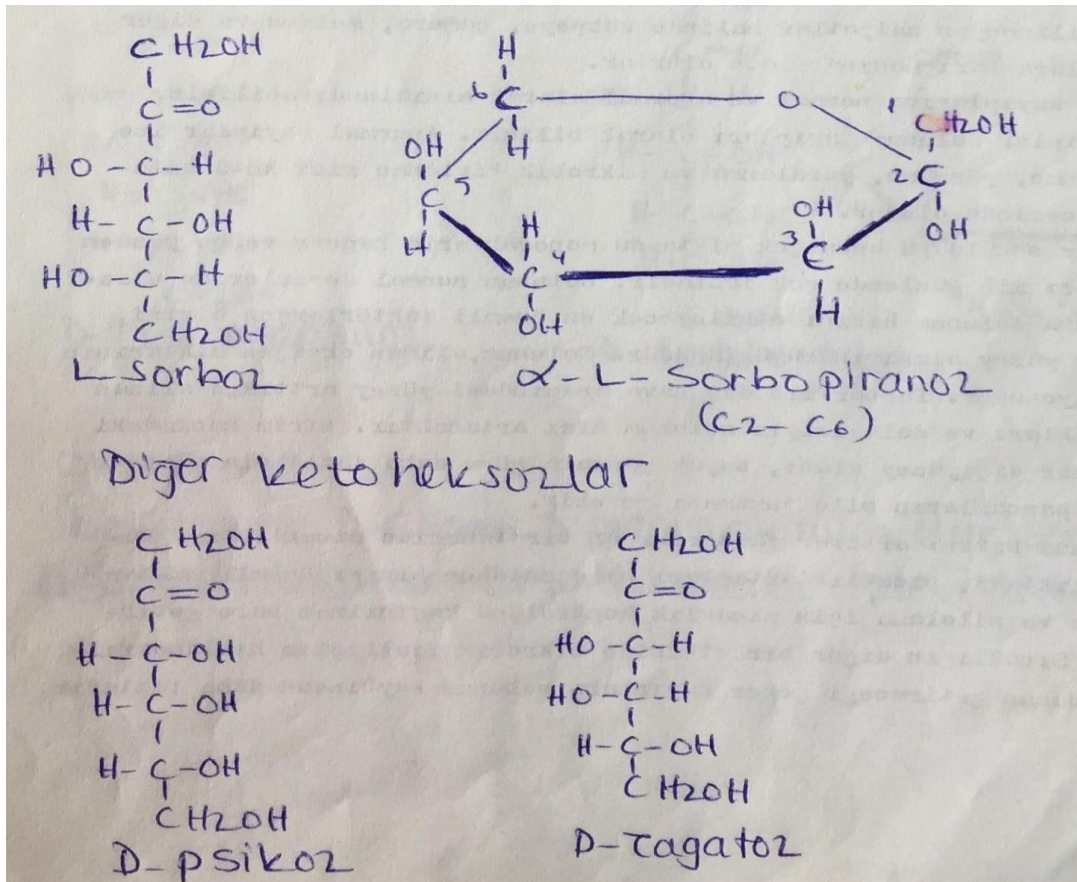 CH2OH
C=O
HO-C-H
H-C-OH
HO-C-H
CH2OH
L-Sorboz
H
6 C
H
O
1 CH2OH
2 C
OH
OH
C 5
H
H
C 4
OH
OH
3 C
H
α-L-Sorbopiranoz
(C2-C6)
Diğer ketoheksozlar
CH2OH
C=O
H-C-OH
H-C-OH
H-C-OH
CH2OH
D-psikoz
CH2OH
C=O
HO-C-H
HO-C-H
H-C-OH
CH2OH
D-Tagatoz